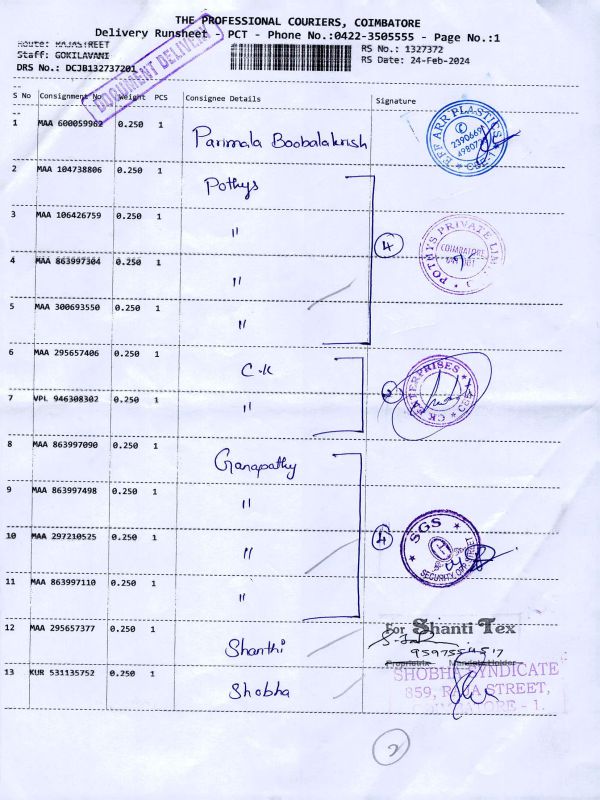 THE PROFESSIONAL COURIERS, COIMBATORE
Delivery Runsheet - PCT - Phone No.:0422-3505555 - Page No.:1
Route: RAJASTREET
Staff: GOKILAVANI
DRS No.: DCJB132737201
RS No.: 1327372
RS Date: 24-Feb-2024
DOCUMENT DELIVERY
S No Consignment No Weight PCS Consignee Details Signature
1 MAA 600059962 0.250 1 Parimala Boobalakrish
EFF ARR PLASTICS CBE-1
2 MAA 104738806 0.250 1 Pothys
3 MAA 106426759 0.250 1 "
4
POTHYS PRIVATE LIMITED COIMBATORE
4 MAA 863997304 0.250 1 "
5 MAA 300693550 0.250 1 "
6 MAA 295657406 0.250 1 C.K
2
CK ENTERPRISES CBE-1
7 VPL 946308302 0.250 1 "
8 MAA 863997090 0.250 1 Ganapathy
9 MAA 863997498 0.250 1 "
4
SGS SECURITY
10 MAA 297210525 0.250 1 "
11 MAA 863997110 0.250 1 "
12 MAA 295657377 0.250 1 Shanthi
For Shanti Tex
Proprietrix Mandate Holder
13 KUR 531135752 0.250 1 Shobha
SHOBHA SYNDICATE
859, RAJA STREET,
COIMBATORE - 1.
2